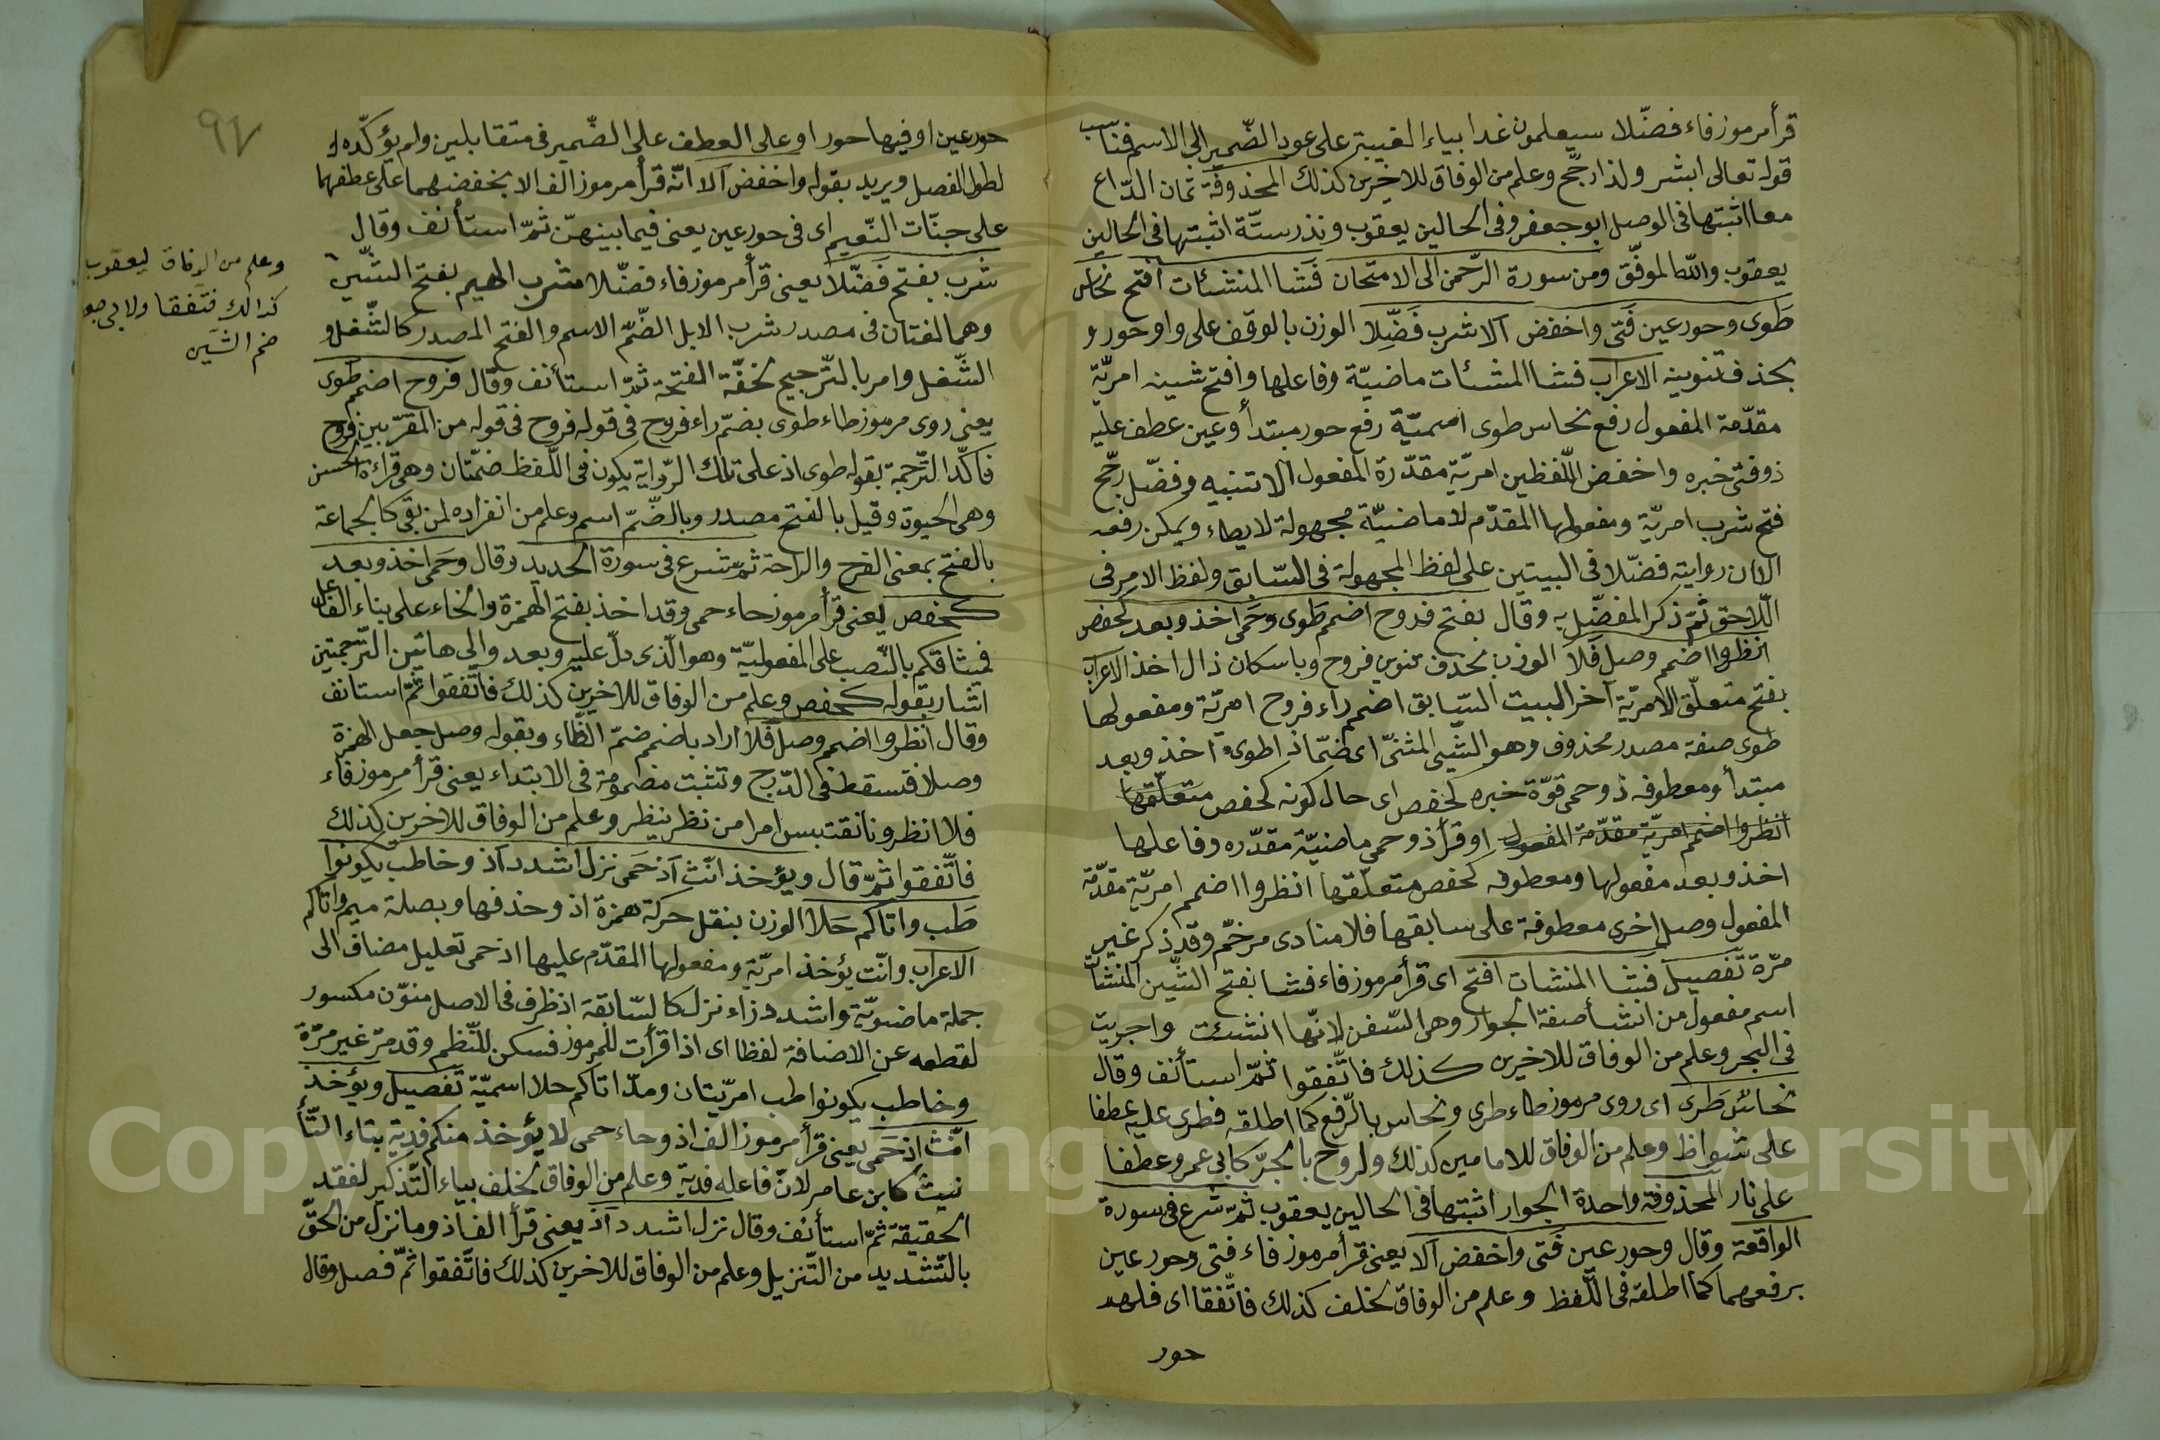 قرأ مرموز فاء فضّلا سيعلمون غدا بياء الغيبة على عود الضّمير الى الاسم فناسب
قوله تعالى ابشر ولذا رجّح وعلم من الوفاق للاخرين كذلك المحذوفة ثمان الدّاع
معا اثبتها فى الوصل ابو جعفر وفى الحالين يعقوب ونذر ستّة اثبتها فى الحالين
يعقوب والله الموفّق ومن سورة الرّحمن الى الامتحان فَشا المنشئات افتح نحاس
طَوى وحور عين فَتى واخفض آلا شرب فَضّلا الوزن بالوقف على واو حور و
بحذف تنوينه الاعراب فشا المنشئات ماضيّة وفاعلها وافتح شينه امريّة
مقدّمة المفعول رفع نحاس طوى اسميّة رفع حور مبتدأ وعين عطف عليه
ذو فتى خبره واخفض اللّفظين امريّة مقدّرة المفعول الا تنبيه وفضّل رجّح
فتح شرب امريّة ومفعولها المقدّم لا ماضيّة مجهولة لايطاء ويمكن رفعه
الان روايته فضّلا فى البيتين على لفظ المجهولة فى السّابق ولفظ الامر فى
اللّاحق ثمّ ذكر المفضّل به وقال بفتح فروح اضمم طَوى وحَمى اخذ وبعد كحفص
انظروا اضمم وصل فَلا الوزن بحذف تنوين فروح وباسكان ذال اخذ الاعراب
بفتح متعلّق الامريّة آخر البيت السّابق اضمم راء فروح امريّة ومفعولها
طوى صفة مصدر محذوف وهو الشّيى المثنىّ اى ضمّا ذا طوى اخذ وبعد
مبتدأ ومعطوفه ذو حمى قوّة خبره كحفص اى حال كونه كحفص متعلّقها
انظروا اضمم امريّة مقدّمة المفعول او قرأ ذو حمى ماضيّة مقدّره وفاعلها
اخذ وبعد مفعولها ومعطوفه كحفص متعلّقها انظروا اضمم امريّة مقدّمة
المفعول وصل اخرى معطوفة على سابقها فلا منادى مرخّم وقد ذكر غير
مرّة تفصيل فشا المنشات افتح اى قرأ مرموز فاء فشا بفتح الشّين المنشأت
اسم مفعول من انشأ صفة الجوار وهى السّفن لانّها انشئت واجريت
فى البحر وعلم من الوفاق للاخرين كذلك فاتّفقوا ثمّ استأنف وقال
نحاس طَرى اى روى مرموز طاء طرى ونحاس بالرّفع كما اطلقه فطرى عليه عطفا
على شواظ وعلم من الوفاق للامامين كذلك ولروح بالجرّ كابى عمرو عطفا
على نار المحذوفة واحدة الجوار اثبتها فى الحالين يعقوب ثمّ شرع فى سورة
الواقعة وقال وحور عين فَتى واخفض آلا يعنى قرأ مرموز فاء فتى وحور عين
برفعهما كما اطلقه فى اللّفظ وعلم من الوفاق لخلف كذلك فاتّفقا اى فلهم
حور
٩٧
حور عين او فيها حور او على العطف على الضّمير فى متقابلين ولم يؤكّده
لطول الفصل ويريد بقوله واخفض آلا انّه قرأ مرموز الف الا بخفضهما على عطفهما
على جنّات النّعيم اى فى حور عين يعنى فيما بينهنّ ثمّ استأنف وقال
شرب بفتح فَضّلا يعنى قرأ مرموز فاء فضّلا شرب الهيم بفتح الشّين
وهما لغتان فى مصدر شرب الابل الضّمّ الاسم والفتح المصدر كالشَّغل و
الشُّغل وامر بالتّرجيح لخفّة الفتحة ثمّ استأنف وقال فروح اضمم طوى
يعنى روى مرموز طاء طوى بضمّ راء فروح فى قوله فروح فى قوله من المقرّبين فروح
فاكّد التّرجمة بقوله طوى اذ على تلك الرّواية يكون فى اللّفظ ضمّتان وهى قراءة الحسن
وهى الحيوة وقيل بالفتح مصدر وبالضّمّ اسم وعلم من انفراده لمن بقى كالجماعة
بالفتح بمعنى الفرح والراحة ثمّ شرع فى سورة الحديد وقال وحَمى اخذ وبعد
كحفص يعنى قرأ مرموز حاء حمى وقد اخذ بفتح الهمزة والخاء على بناء الفاعل
فميثاقكم بالنّصب على المفعوليّة وهو الّذى دلّ عليه وبعد والى هاتين التّرجمتين
اشار بقوله كحفص وعلم من الوفاق للاخرين كذلك فاتّفقوا ثمّ استانف
وقال انظروا اضمم وصل فَلا اراد باضمم ضمّ الظّاء وبقوله وصل جعل الهمزة
وصلا فتسقط فى الدّرج وتثبت مضمومة فى الابتداء يعنى قرأ مرموز فاء
فلا انظرونا نقتبس امرا من نظر ينظر وعلم من الوفاق للاخرين كذلك
فاتّفقوا ثمّ قال ويؤخذ انّث آذ حَمى نزل اشدد آذ وخاطب يكونوا
طَب واتاكم حَلا الوزن بنقل حركة همزة اذ وحذفها وبصلة ميم واتاكم
الاعراب وانّث يؤخذ امريّة ومفعولها المقدّم عليها اذ حمى تعليل مضاف الى
جملة ماضويّة واشدد زاء نزل كالسّابقة اذ ظرف فى الاصل منوّن مكسور
لقطعه عن الاضافة لفظا اى اذا قرأت للمرموز فسكن للنّظم وقد مرّ غير مرّة
وخاطب يكونوا طب امريّتان ومدّ اتاكم حلا اسميّة تفصيل ويؤخذ
انّث اذ حَمى يعنى قرأ مرموز الف اذ وحاء حمى لا يؤخذ منكم فدية بتاء التّأ
نيث كابن عامر لانّ فاعله فدية وعلم من الوفاق لخلف بياء التّذكير لفقد
الحقيقة ثمّ استأنف وقال نزل اشدد آذ يعنى قرأ الف اذ وما نزل من الحقّ
بالتّشديد من التّنزيل وعلم من الوفاق للاخرين كذلك فاتّفقوا ثمّ فصل وقال
وعلم من الوفاق ليعقوب
كذالك فتفقا ولابى جعفر
ضم الشين
Copyright © King Saud University